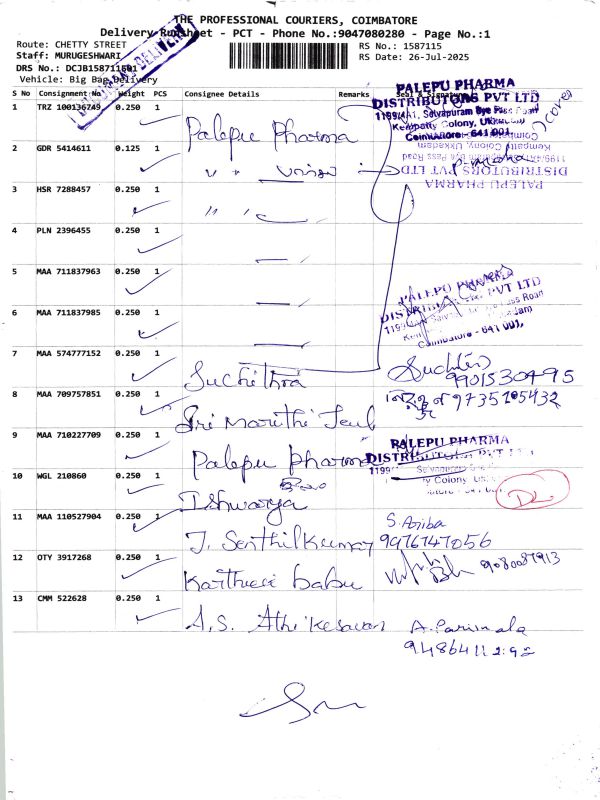 THE PROFESSIONAL COURIERS, COIMBATORE
Delivery Runsheet - PCT - Phone No.:9047080280 - Page No.:1
Route: CHETTY STREET
RS No.: 1587115
Staff: MURUGESHWARI
RS Date: 26-Jul-2025
DRS No.: DCJB158711501
Vehicle: Big Bag Delivery
S No Consignment No Weight PCS Consignee Details Remarks Seal & Signature
PALEPU PHARMA
DISTRIBUTORS PVT LTD
1199/4A1, Selvapuram Bye Pass Road
Kempatty Colony, Ukkadam
Coimbatore - 641 001
1 TRZ 100136749 0.250 1 Palepu Pharma
(cover)
2 GDR 5414611 0.125 1 " "
PALEPU PHARMA
DISTRIBUTORS PVT LTD
1199/4A1, Selvapuram Bye Pass Road
Kempatty Colony, Ukkadam
3 HSR 7288457 0.250 1 " "
4 PLN 2396455 0.250 1
5 MAA 711837963 0.250 1
PALEPU PHARMA
DISTRIBUTORS PVT LTD
Coimbatore - 641 001,
6 MAA 711837985 0.250 1
7 MAA 574777152 0.250 1 Suchithra
9901530495
8 MAA 709757851 0.250 1 Sri Maruthi
9735105432
9 MAA 710227709 0.250 1 Palepu Pharma
PALEPU PHARMA
DISTRIBUTORS PVT LTD
10 WGL 210860 0.250 1 Ishwarya
11 MAA 110527904 0.250 1 J. Senthilkumar
S. Ajiba
9976747056
12 OTY 3917268 0.250 1 Karthick babu
9080087913
13 CMM 522628 0.250 1 A.S. Athikesavan
A. Parimala
9486411292